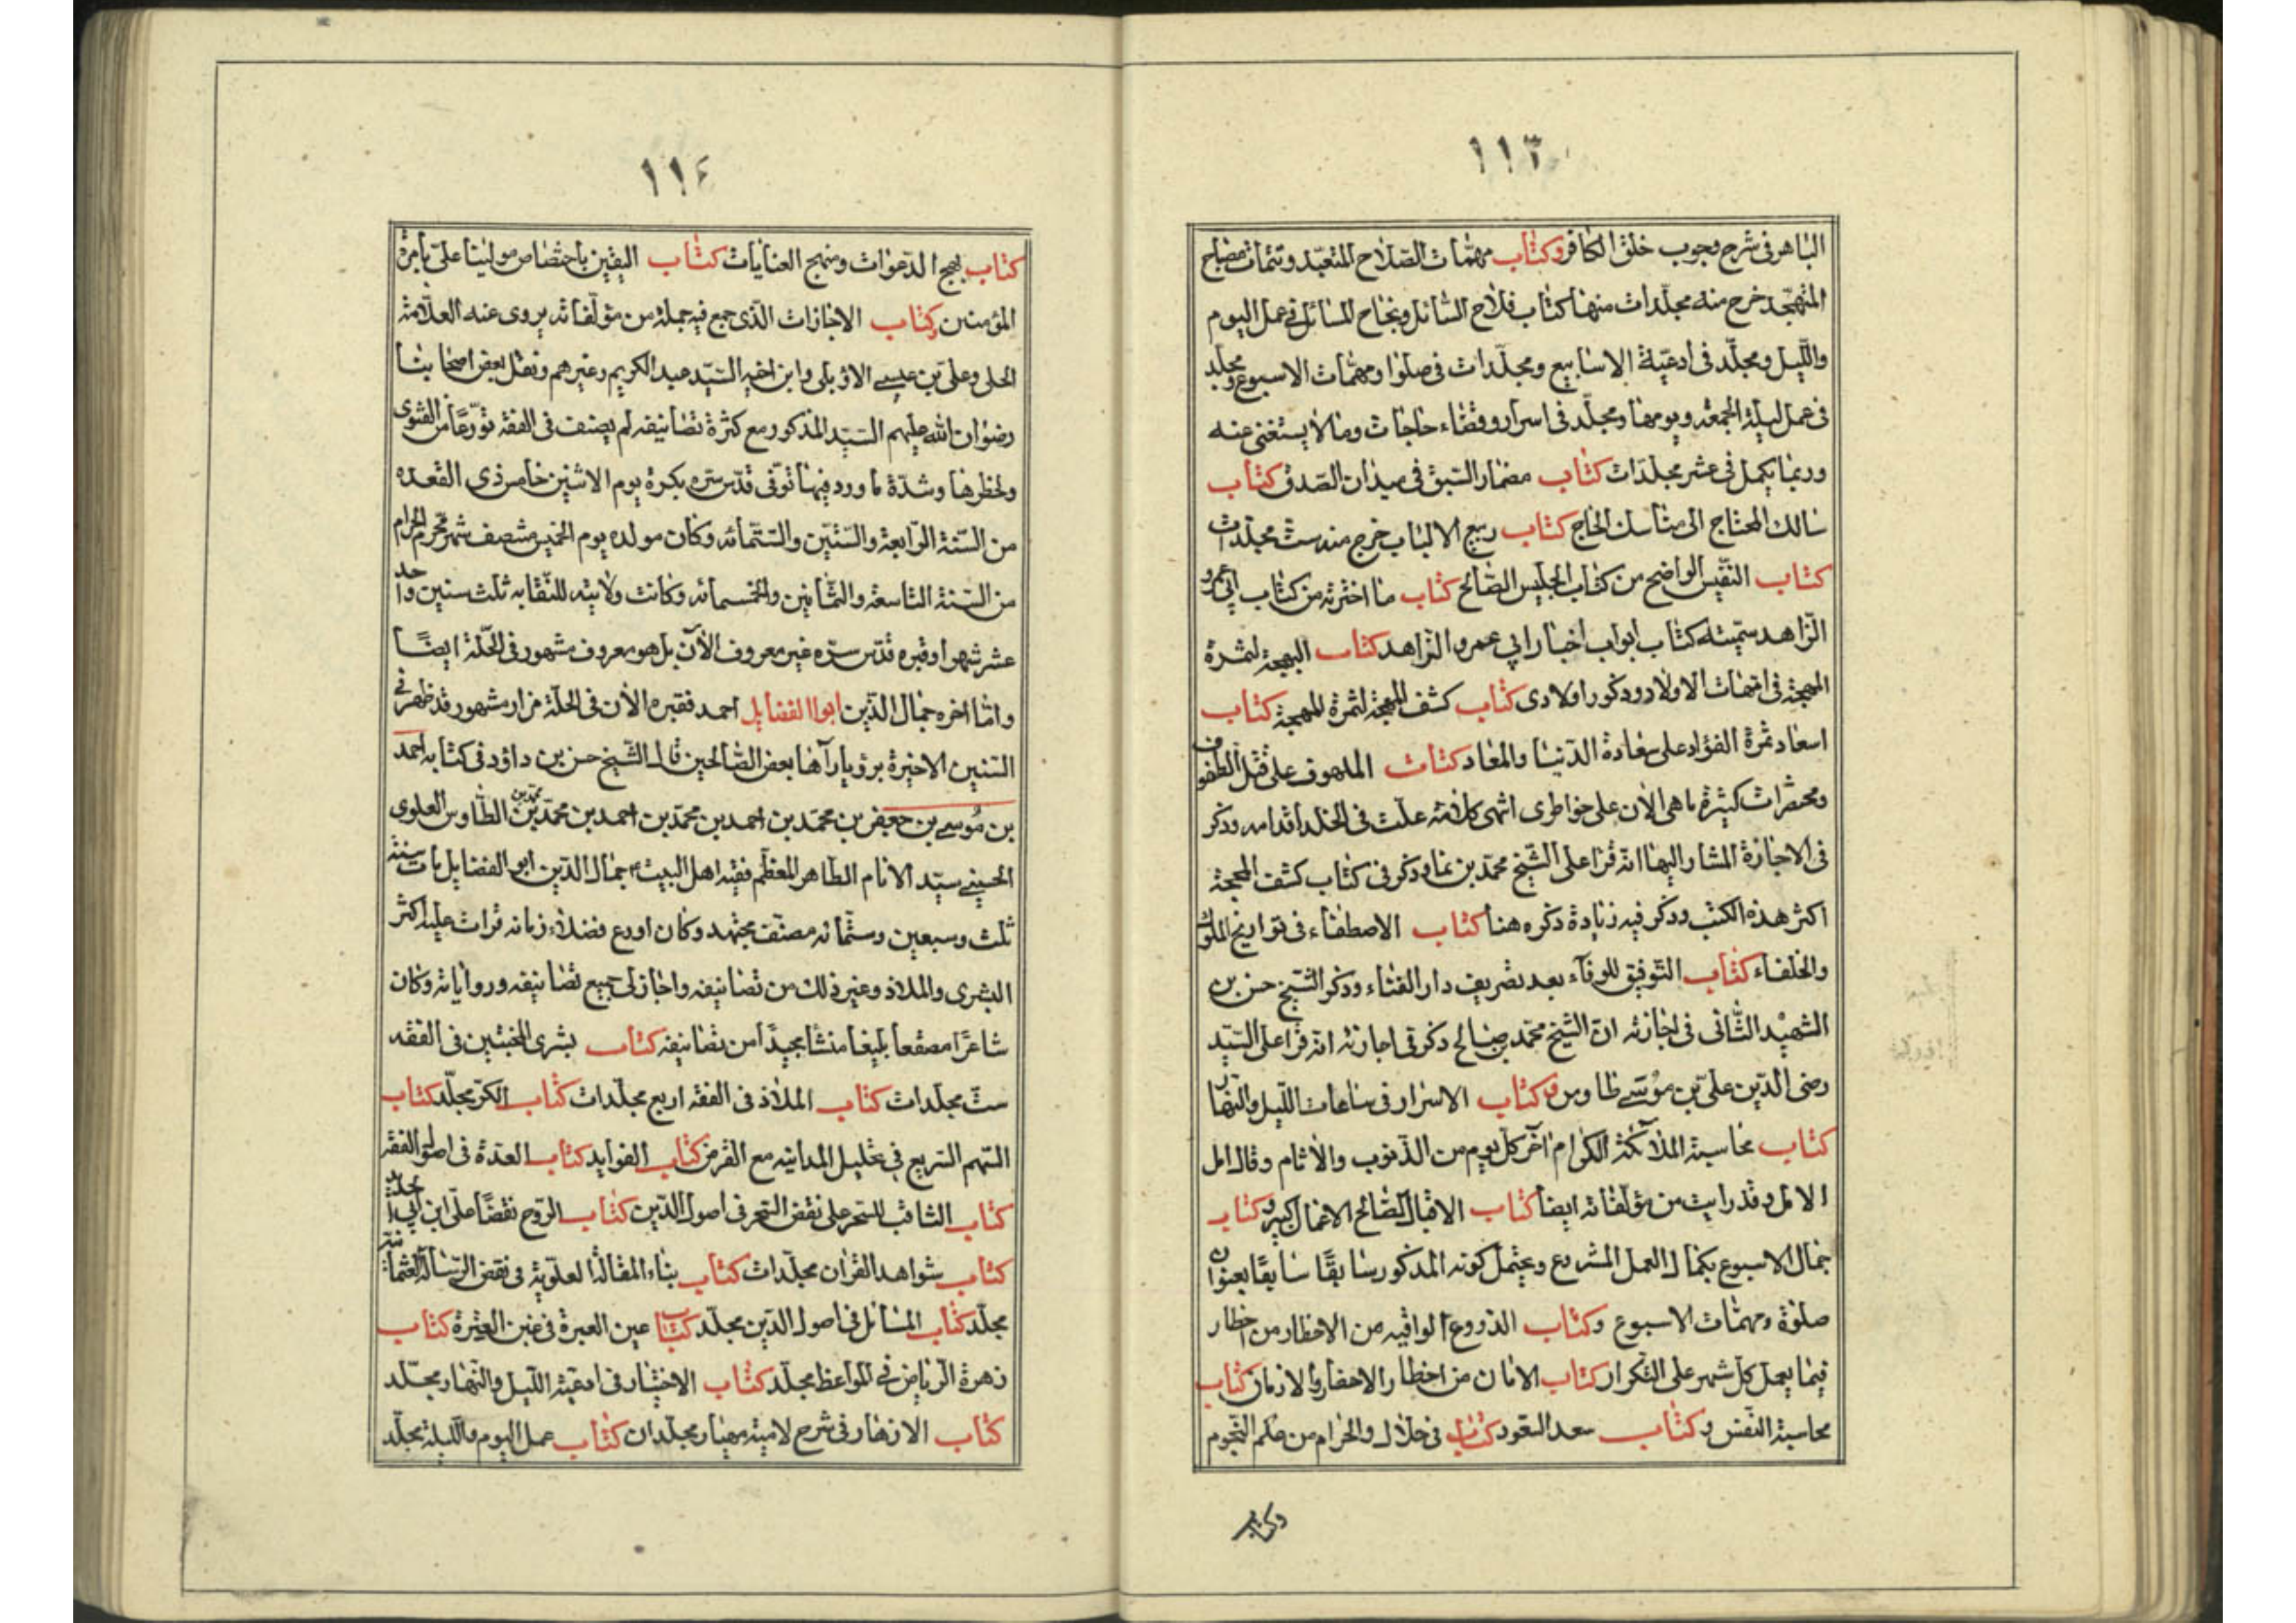 ١١٣
الباهر فى شرح وجوب خلق الكافر وكتاب مهمّات الصّلاح المتعبّد وتتمات مصباح
المتهجّد خرج منه مجلّدات منها كتاب فلاح السّائل ونجاح المسائل فى عمل اليوم
واللّيل ومجلّد فى ادعيّة الاسابيع ومجلّدات فى صلوا ومهمّات الاسبوع ومجلّد
فى عمل ليلة الجمعة ويومها ومجلّد فى اسرار وقضاء حاجات وما لا يستغنى عنه
وربما يكمل فى عشر مجلدات كتاب مضمار السّبق فى ميدان الصّدق كتاب
سالك المحتاج الى مناسك الحاج كتاب ربيع الالباب خرج منه ست مجلّدات
كتاب النّفيس الواضح من كتاب الجليس الصّالح كتاب ما اخترته من كتاب ابى عمرو
الزّاهد سمّيته كتاب ابواب اخبار ابي عمرو الزّاهد كتاب البهجة لثمرة
المهجة فى امّهات الاولاد وذكور اولادى كتاب كشف المهجة لثمرة المهجة كتاب
اسعاد ثمرة الفؤاد على سعادة الدّنيا والمعاد كتاب الملهوف على قتل الطفوف
ومختصرات كثيرة ما هى الآن على خواطرى انتهى كلامه علت فى الخلد اقدامه وذكر
فى الاجازة المشار اليها انّه قرأ على الشّيخ محمّد بن نما وذكر فى كتاب كشف المحجة
اكثر هذه الكتب وذكر فيه زيادة ذكره هنا كتاب الاصطفاء فى تواريخ الملوك
والخلفاء كتاب التّوفيق للوفآء بعد تصريف دار الفناء وذكر الشّيخ حسن بن
الشهيد الثّانى فى اجازته انّ الشّيخ محمّد بن صالح ذكر فى اجازته انّه قرأ على السّيّد
رضى الدّين علىّ بن موسى طاوس وكتاب الاسرار فى ساعات اللّيل والنّهار
كتاب محاسبة الملآئكة الكرام آخر كلّ يوم من الذّنوب والاثام وقال امل
الامل وقد رايت من مؤلّفاته ايضا كتاب الاقبال لصّالح الاعمال كبير وكتاب
جمال الاسبوع بكمال العمل المشروع ويحتمل كونه المذكور سابقًا سابقًا بعنوان
صلوة ومهمّات الاسبوع وكتاب الدّروع الواقيه من الاخطار من اخطار
فيما يعمل كلّ شهر على التّكرار كتاب الامان من اخطار الاسفار والازمان كتاب
محاسبة النّفس وكتاب سعد السّعود كتاب فى حلال والحرام من علم النّجوم
وكتاب
١١٤
كتاب بهج الدّعوات ومنهج العنايات كتاب اليقين باختصاص مولينا علىّ بامرة
المؤمنين وكتاب الاجازات الّذى جمع فيه جملة من مؤلّفاته يروى عنه العلّامة
الحلى وعلىّ بن عيسى الاربلى وابن اخيه السّيّد عبد الكريم وغيرهم ونقل بعض اصحابنا
رضوان الله عليهم السّيّد المذكور مع كثرة تصانيفه لم يصنف فى الفقه تورّعًا من الفتوى
ولخطرها وشدّة ما ورد فيها توّفى قدّس سرّه بكرة يوم الاثنين خامس ذى القعده
من السّنة الرّابعة والسّتّين والسّتّمائه وكان مولده يوم الخميس منتصف شهر محرّم الحرام
من السّنة التاسعة والثّمانين والخمسمائه وكانت ولايته للنّقابه ثلث سنين واحد
عشر شهرا وقبره قدّس سرّه غير معروف الآن بل هو معروف مشهور فى الحّلة ايضًا
وامّا اخوه جمال الدّين ابوا الفضايل احمد فقبره الآن فى الحلّة مزار مشهور قد ظهر فى
السّنين الاخيرة برؤيا رآها بعض الصّالحين قال الشّيخ حسن بن داؤد فى كتابه احمد
بن موسى بن جعفر بن محمّد بن احمد بن محمّد بن احمد بن محمّد بن محمّد بن الطّاوس العلوى
الحسينى سيّد الامام الطاهر المعظّم فقيه اهل البيت جمال الدّين ابو الفضايل مات سنة
ثلث وسبعين وستّمائه مصنّف مجتهد وكان اورع فضلاء زمانه قرات عليه اكثر
البشرى والملاذ وغير ذلك من تصانيفه واجاز لى جميع تصانيفه ورواياته وكان
شاعرًا مصقعا بليغا منشا مجيدًا من تصانيفه كتاب بشرى المخبتين فى الفقه
ستّ مجلدات كتاب الملاذ فى الفقه اربع مجلدات كتاب الكر مجلّد كتاب
السّهم السّريع فى تحليل المداينه مع القرض كتاب الفوايد كتاب العدّة فى اصول الفقه
كتاب الثاقب المسخر على نقض المشجر فى اصول الدّين كتاب الرّوح نقضًا على ابن ابى الحديد
كتاب شواهد القران مجلّدات كتاب بناء المقالة العلويّة فى نقض الرّسالة العثمانيّة
مجلّد كتاب المسائل فى اصول الدّين مجلّد كتاب عين العبرة فى غبن العترة كتاب
زهرة الرّياض فى المواعظ مجلّد كتاب الاختيار فى ادعية اللّيل والنّهار مجلّد
كتاب الازهار فى شرح لامية مهيار مجلّدان كتاب عمل اليوم واللّيلة مجلّد